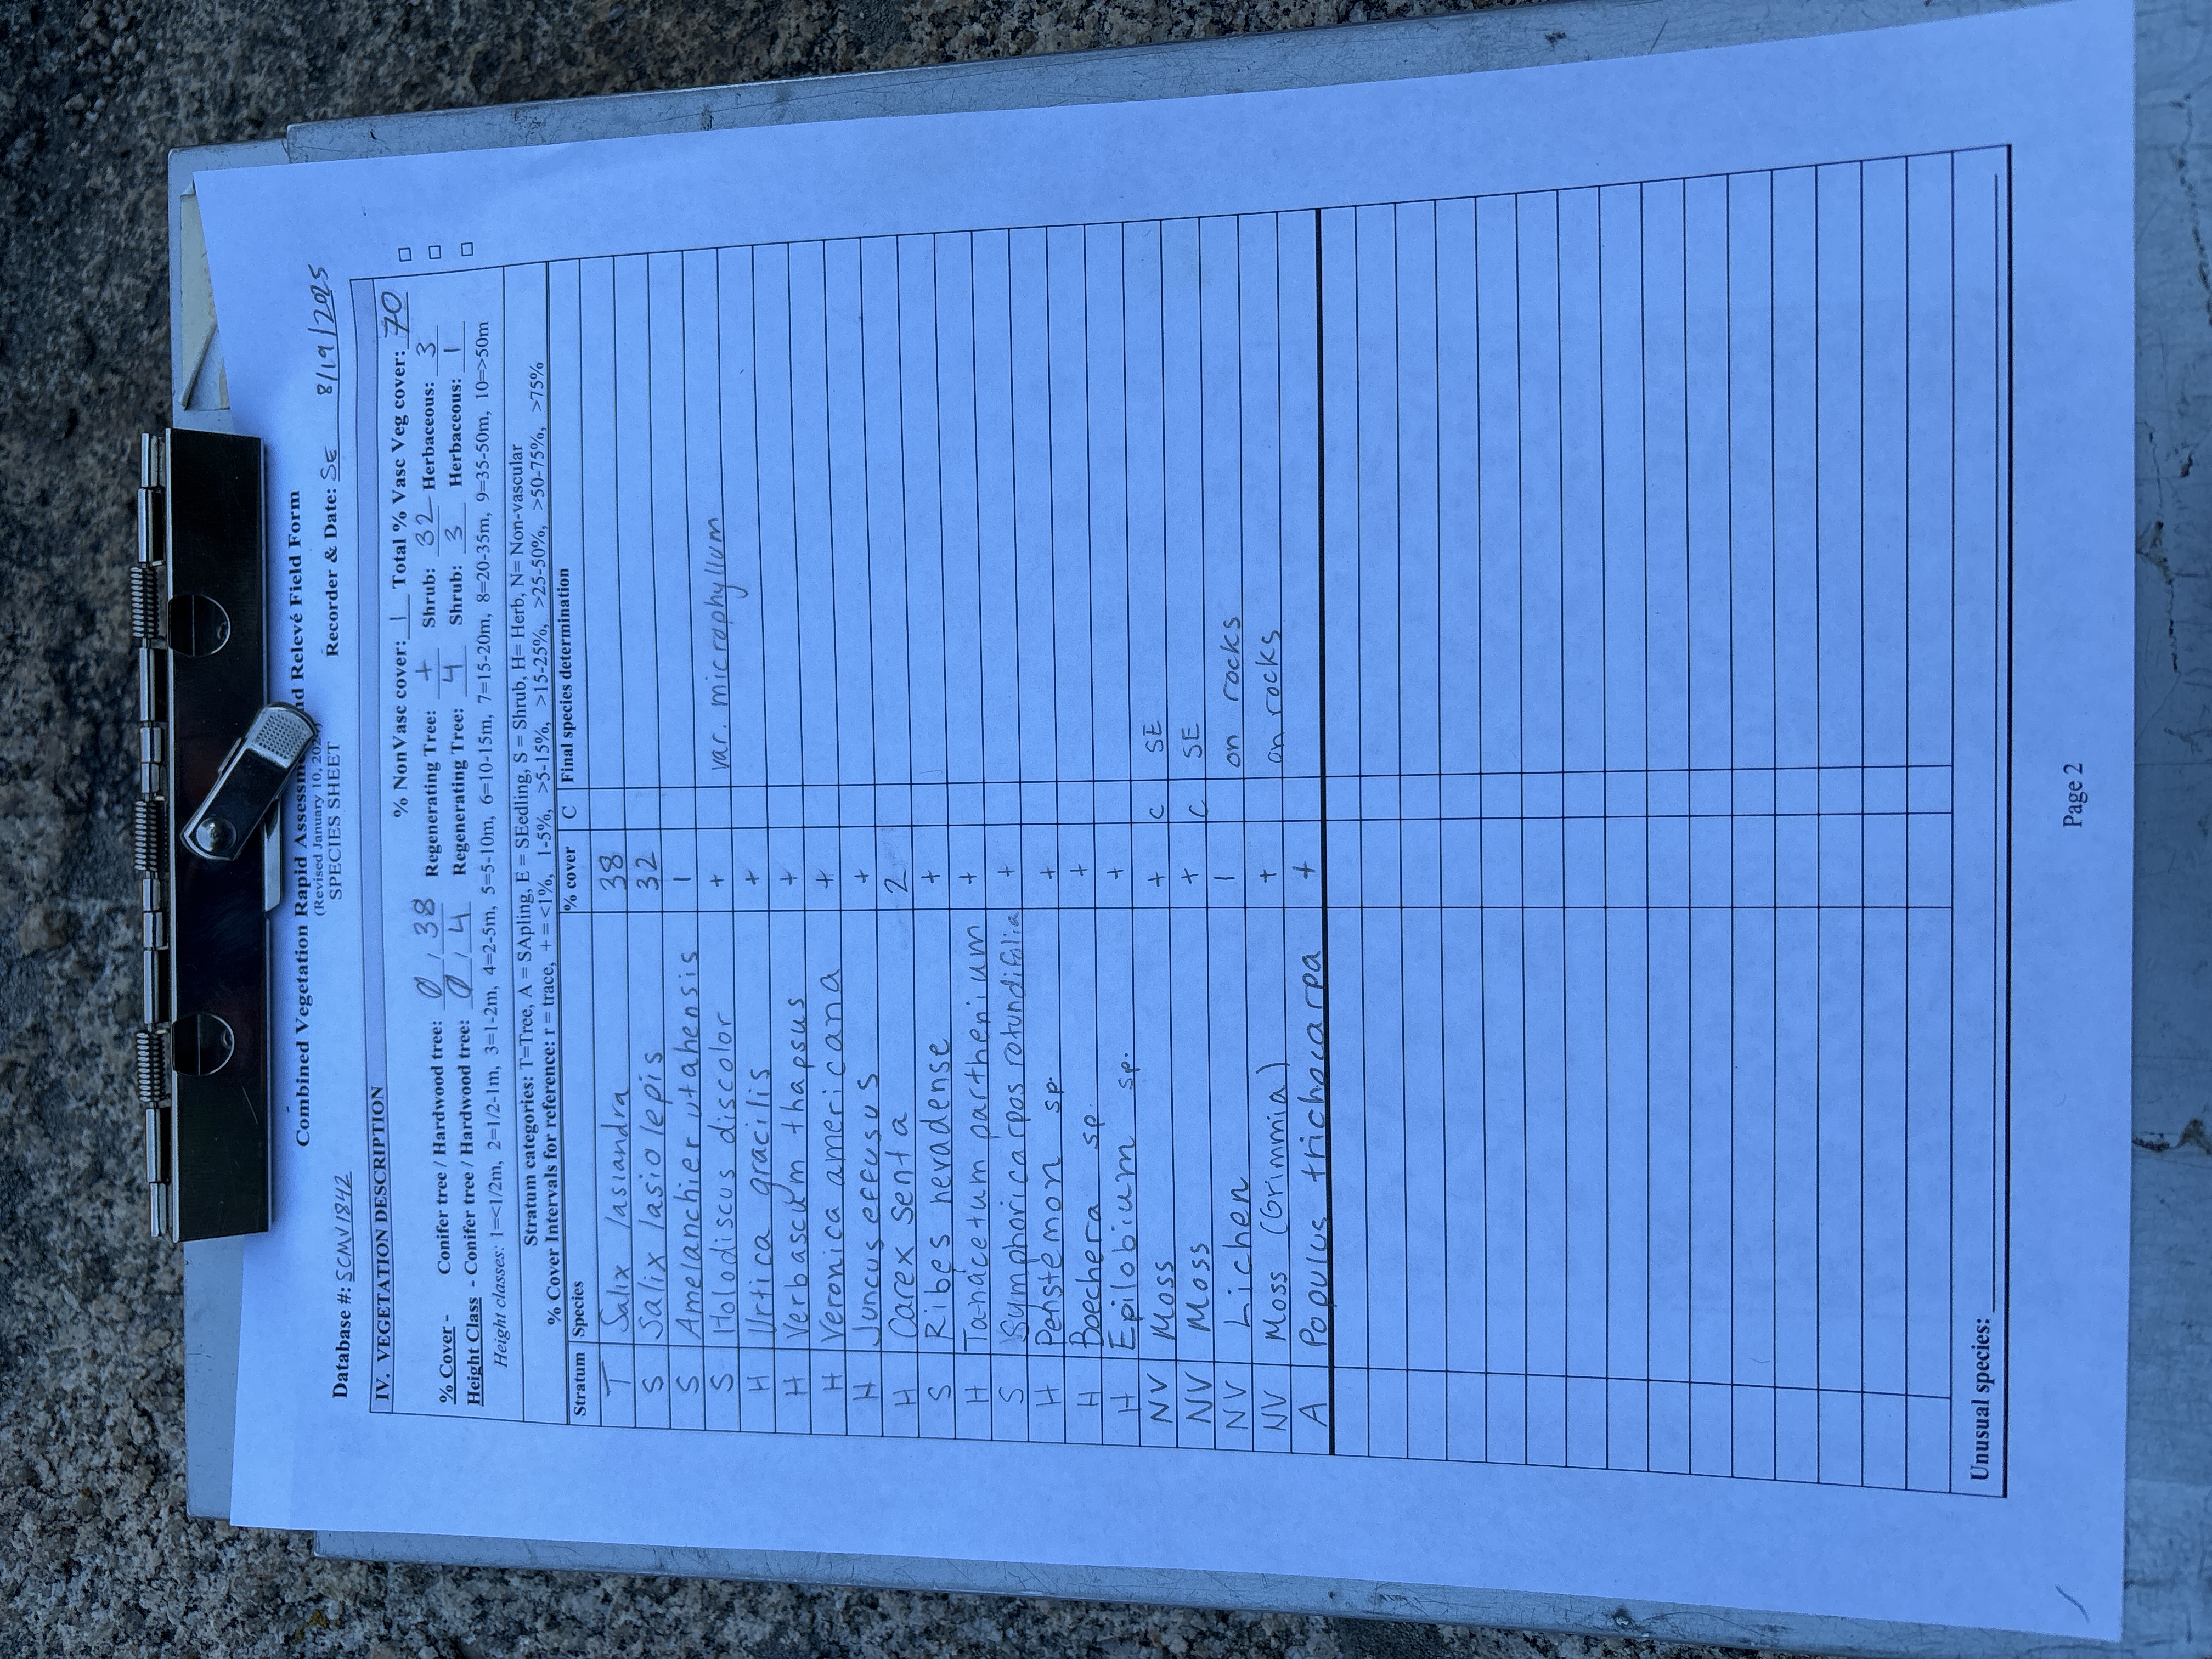 Combined Vegetation Rapid Assessm nd Relevé Field Form
(Revised January 10, 202
SPECIES SHEET
Database #: SCMV1842 Recorder & Date: SE 8/19/2025
IV. VEGETATION DESCRIPTION
% NonVasc cover: 1 Total % Vasc Veg cover: 70
% Cover - Conifer tree / Hardwood tree: 0 / 38 Regenerating Tree: + Shrub: 32 Herbaceous: 3
Height Class - Conifer tree / Hardwood tree: 0 / 4 Regenerating Tree: 4 Shrub: 3 Herbaceous: 1
Height classes: 1=<1/2m, 2=1/2-1m, 3=1-2m, 4=2-5m, 5=5-10m, 6=10-15m, 7=15-20m, 8=20-35m, 9=35-50m, 10=>50m
Stratum categories: T=Tree, A = SApling, E = SEedling, S = Shrub, H= Herb, N= Non-vascular
% Cover Intervals for reference: r = trace, + = <1%, 1-5%, >5-15%, >15-25%, >25-50%, >50-75%, >75%
Stratum Species % cover C Final species determination
T Salix lasiandra 38
S Salix lasiolepis 32
S Amelanchier utahensis 1
S Holodiscus discolor + var. microphyllum
H Urtica gracilis +
H Verbascum thapsus +
H Veronica americana +
H Juncus effusus +
H Carex senta 2
S Ribes nevadense +
H Tanacetum parthenium +
S Symphoricarpos rotundifolia +
H Penstemon sp. +
H Boechera sp. +
H Epilobium sp. +
NV Moss + C SE
NV Moss + C SE
NV Lichen 1 on rocks
NV Moss (Grimmia) + on rocks
A Populus trichocarpa +
Unusual species:
Page 2